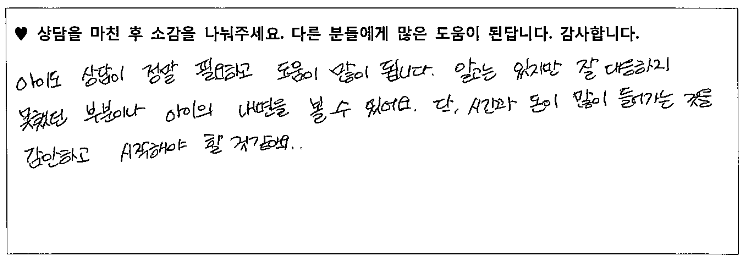 ♥ 상담을 마친 후 소감을 나눠주세요. 다른 분들에게 많은 도움이 된답니다. 감사합니다.
아이도 상담이 정말 필요하고 도움이 많이 됩니다. 알고는 있지만 잘 대응하지
못했던 부분이나 아이의 내면을 볼 수 있어요. 단, 시간과 돈이 많이 들어가는 것을
감안하고 시작해야 할 것같아요..